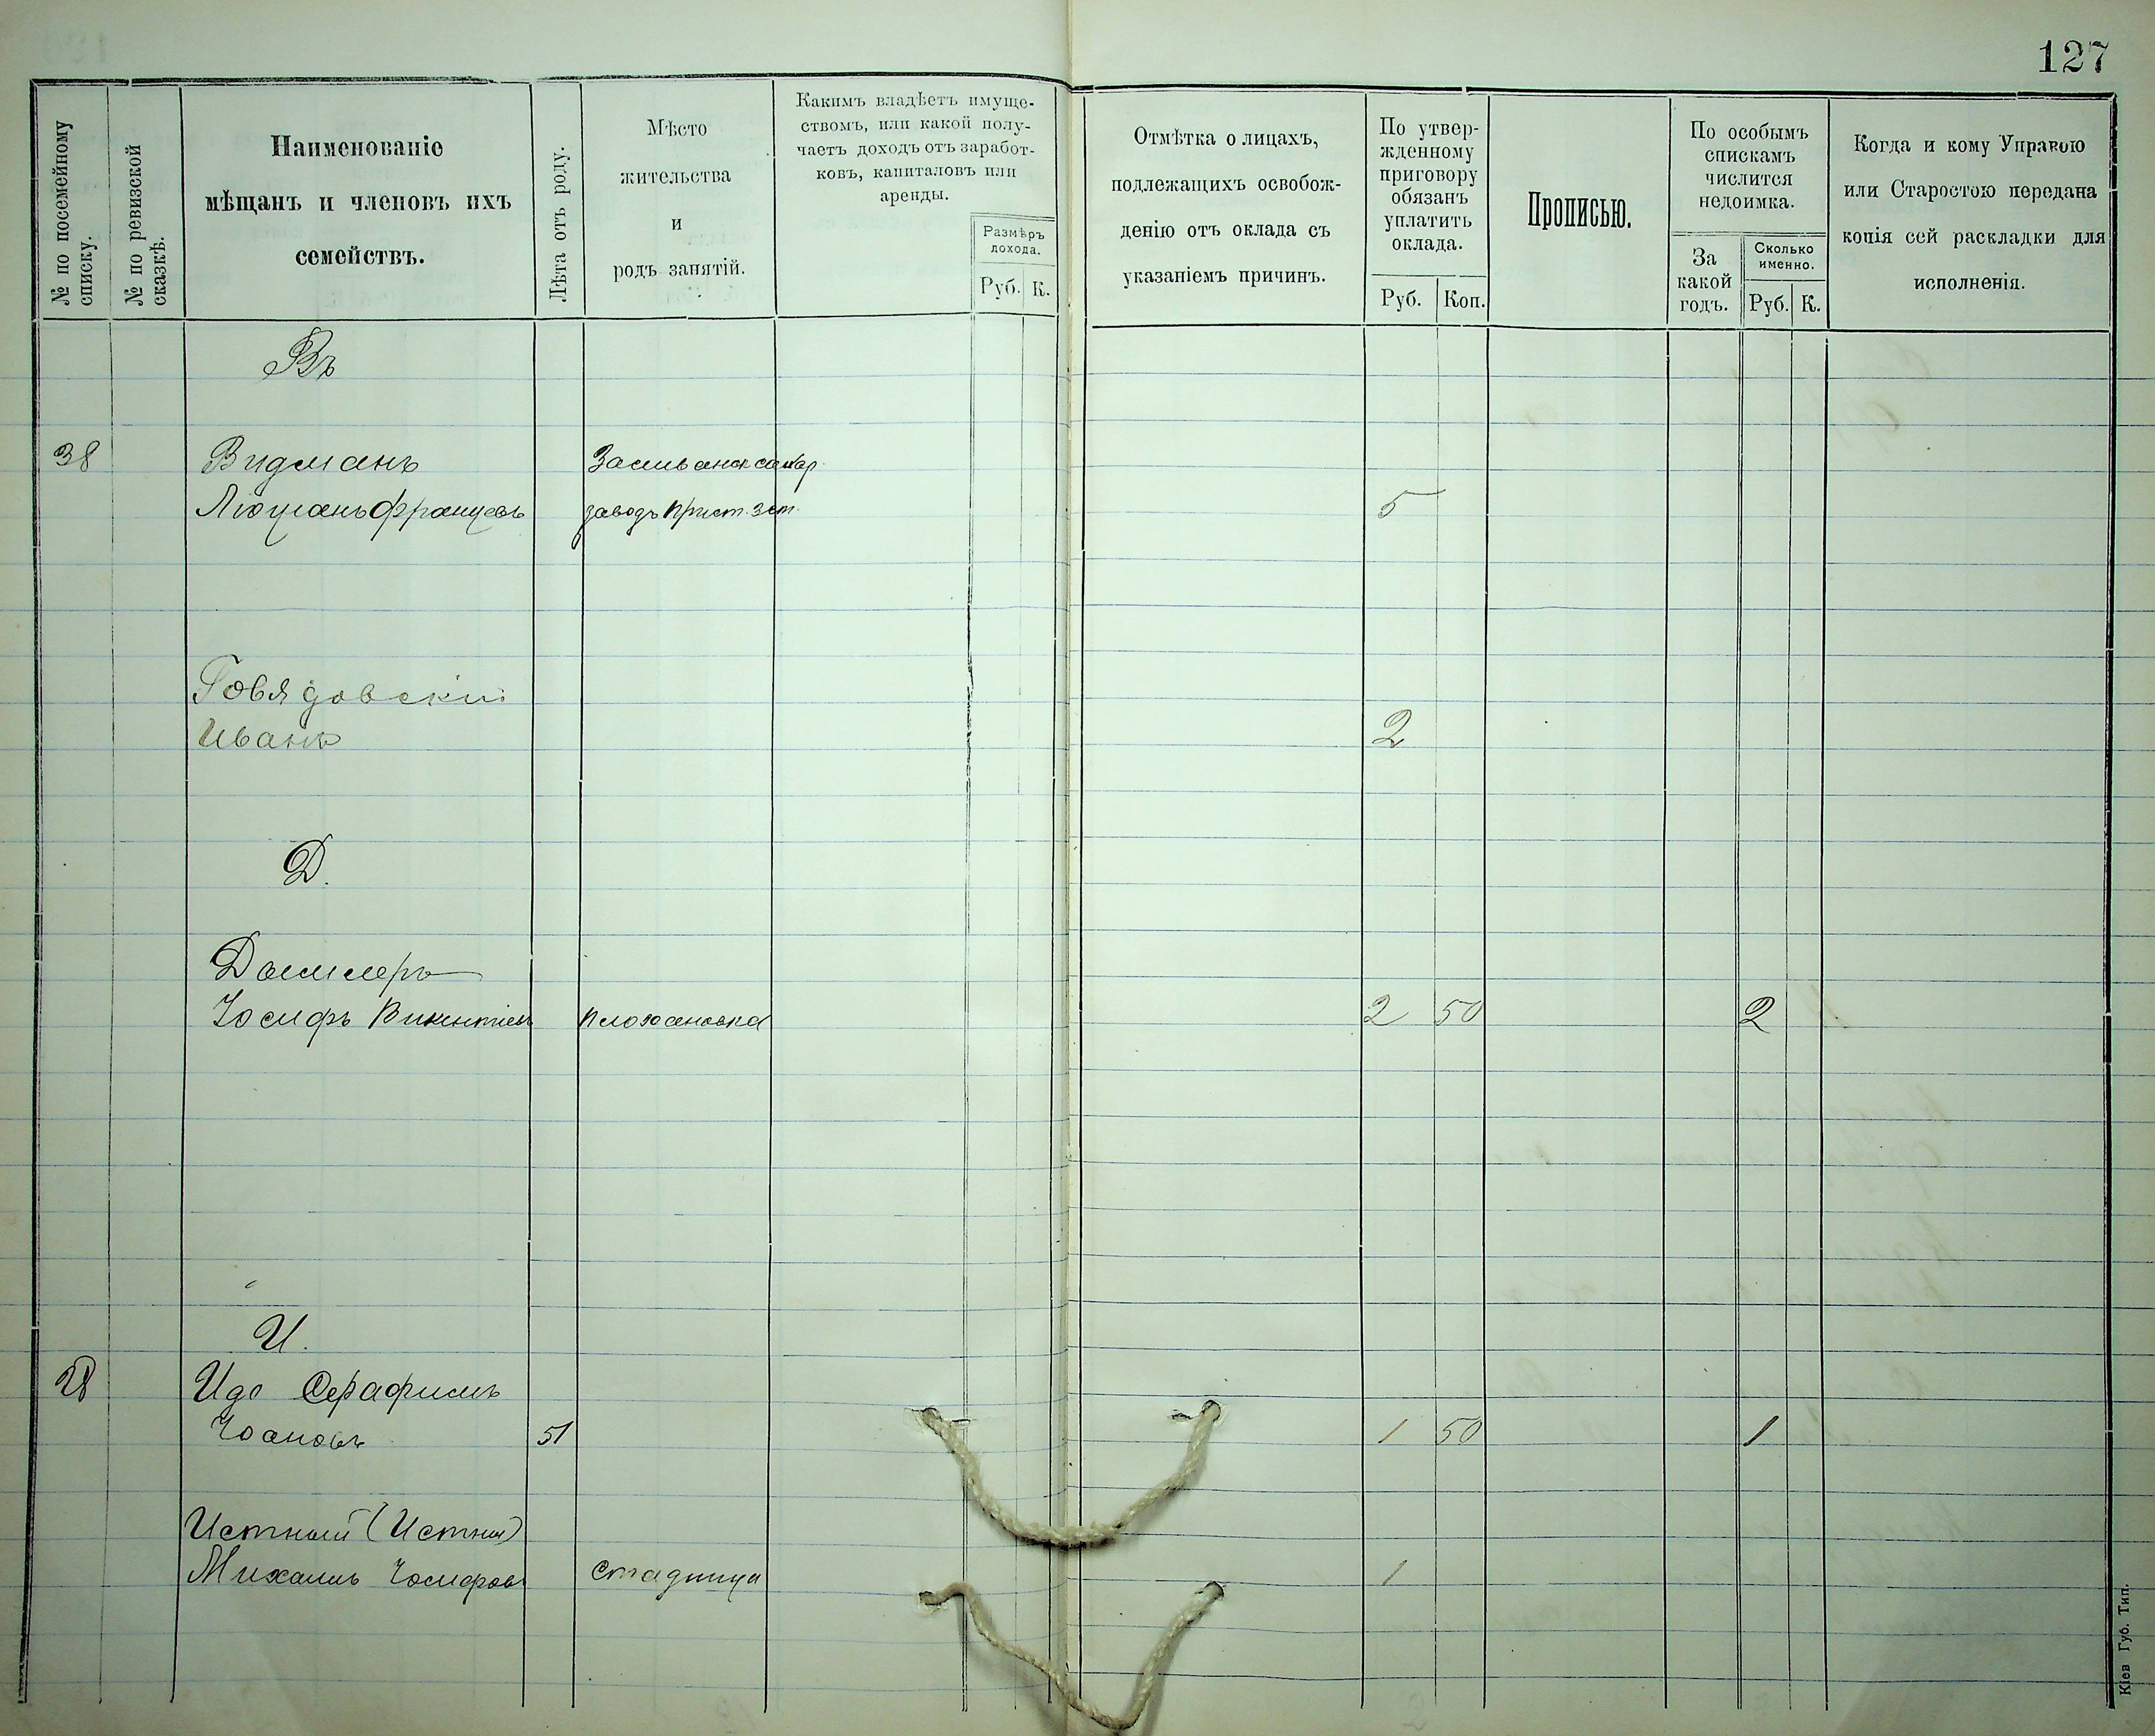 127
№ по посемейному списку.
№ по ревизской сказкѣ.
Наименованіе
мѣщанъ и членовъ ихъ
семействъ.
Лѣта отъ роду.
Мѣсто
жительства
и
родъ занятій.
Какимъ владѣетъ имуще-
ствомъ, или какой полу-
чаетъ доходъ отъ заработ-
ковъ, капиталовъ или
аренды.
Размѣръ
дохода.
Руб. К.
Отмѣтка о лицахъ,
подлежащихъ освобож-
денію отъ оклада съ
указаніемъ причинъ.
По утвер-
жденному
приговору
обязанъ
уплатить
оклада.
Руб. Коп.
Прописью.
По особымъ
спискамъ
числится
недоимка.
За
какой
годъ.
Сколько
именно.
Руб. К.
Когда и кому Управою
или Старостою передана
копія сей раскладки для
исполненія.
Въ
38 Видманъ
Люціанъ Францевъ заводъ 5
Говядовскій
Иванъ 2
Д.
Іосифъ Викентіевъ 2 50 2
И.
28 Идо Серафимъ
51 1 50 1
Истный (Истни)
Михаилъ Іосифовъ Стадница 1
Кіев Губ. Тип.